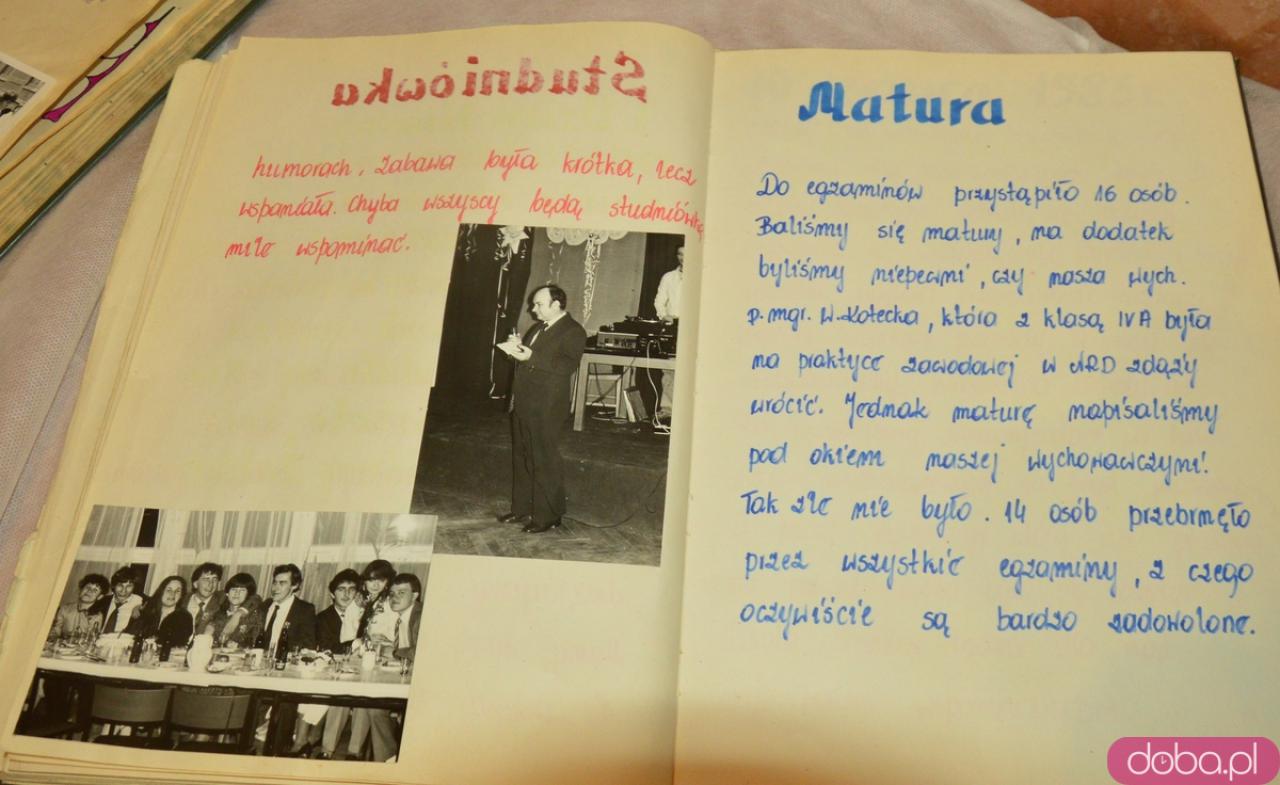 Studniówka
humorach. Zabawa była krótka, lecz
wspaniała. Chyba wszyscy będą studniówkę
mile wspominać.
Matura
Do egzaminów przystąpiło 16 osób.
Baliśmy się matury, na dodatek
byliśmy niepewni, czy nasza wych.
p. mgr. W. Kotecka, która z klasą IV A była
na praktyce zawodowej w NRD zdąży
wrócić. Jednak maturę napisaliśmy
pod okiem naszej wychowawczyni.
Tak źle nie było. 14 osób przebrnęło
przez wszystkie egzaminy, z czego
oczywiście są bardzo zadowolone.
doba.pl